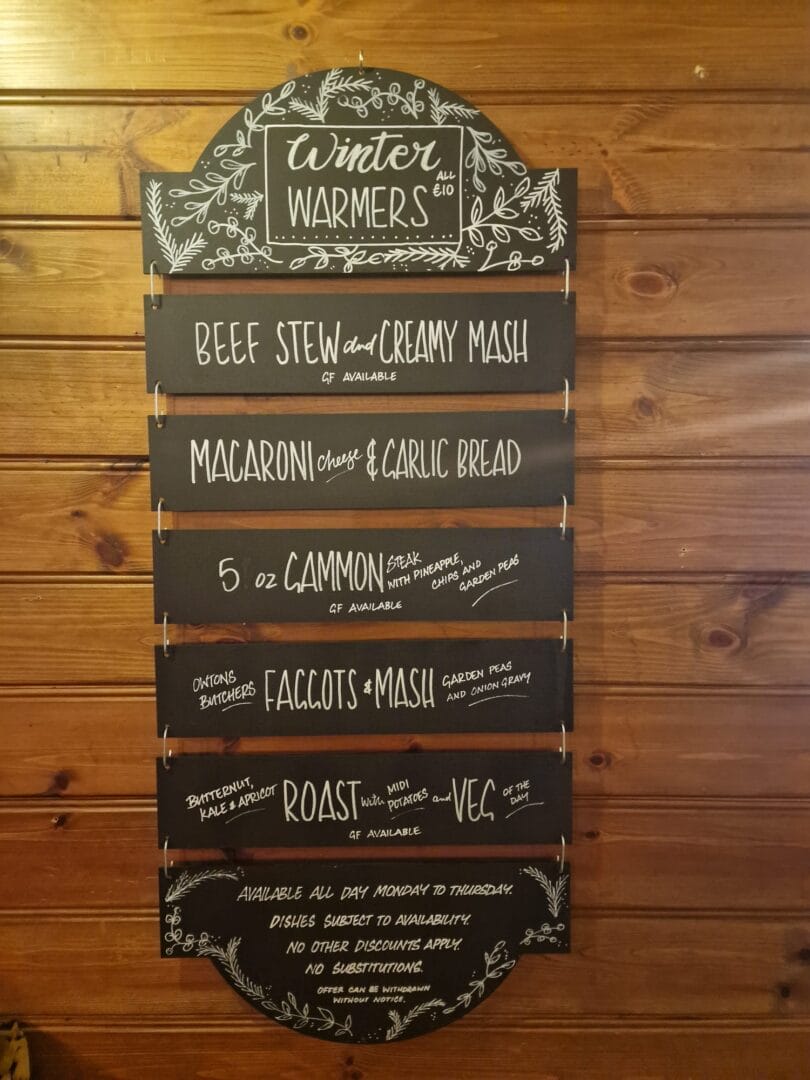 Winter
WARMERS
ALL
£10
BEEF STEW and CREAMY MASH
GF AVAILABLE
MACARONI cheese & GARLIC BREAD
5 OZ GAMMON STEAK
WITH PINEAPPLE,
CHIPS AND
GARDEN PEAS
GF AVAILABLE
OWTONS
BUTCHERS
FAGGOTS & MASH
GARDEN PEAS
AND ONION GRAVY
BUTTERNUT,
KALE & APRICOT
ROAST with MIDI
POTATOES and VEG OF THE
DAY
GF AVAILABLE
AVAILABLE ALL DAY MONDAY TO THURSDAY.
DISHES SUBJECT TO AVAILABILITY.
NO OTHER DISCOUNTS APPLY.
NO SUBSTITUTIONS.
OFFER CAN BE WITHDRAWN
WITHOUT NOTICE.